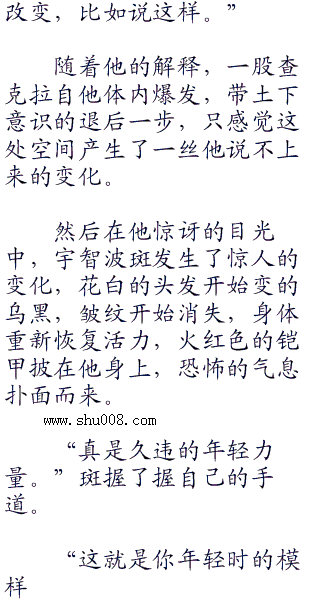 改变，比如说这样。”
随着他的解释，一股查
克拉自他体内爆发，带土下
意识的退后一步，只感觉这
处空间产生了一丝他说不上
来的变化。
然后在他惊讶的目光
中，宇智波斑发生了惊人的
变化，花白的头发开始变的
乌黑，皱纹开始消失，身体
重新恢复活力，火红色的铠
甲披在他身上，恐怖的气息
扑面而来。
www.shu008.com
“真是久违的年轻力
量。”斑握了握自己的手
道。
“这就是你年轻时的模
样